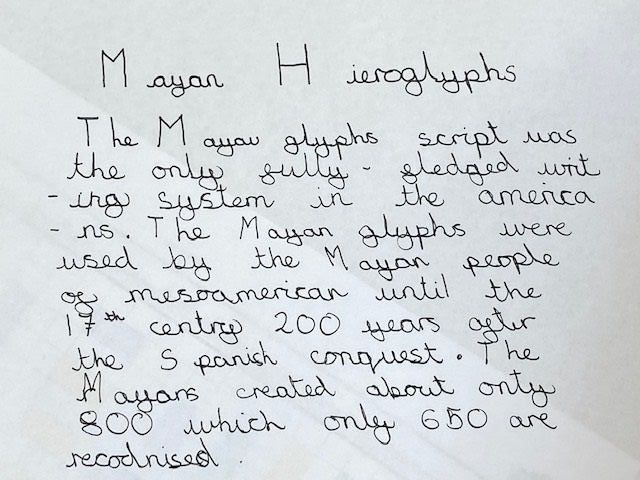 Mayan Hieroglyphs
The Mayau glyphs script was
the only fully - fledged writ
- ing system in the america
- ns. The Mayan glyphs were
used by the Mayan people
of mesoamerican until the
17th centry 200 years after
the Spanish conquest. The
Mayans created about only
800 which only 650 are
recodnised.